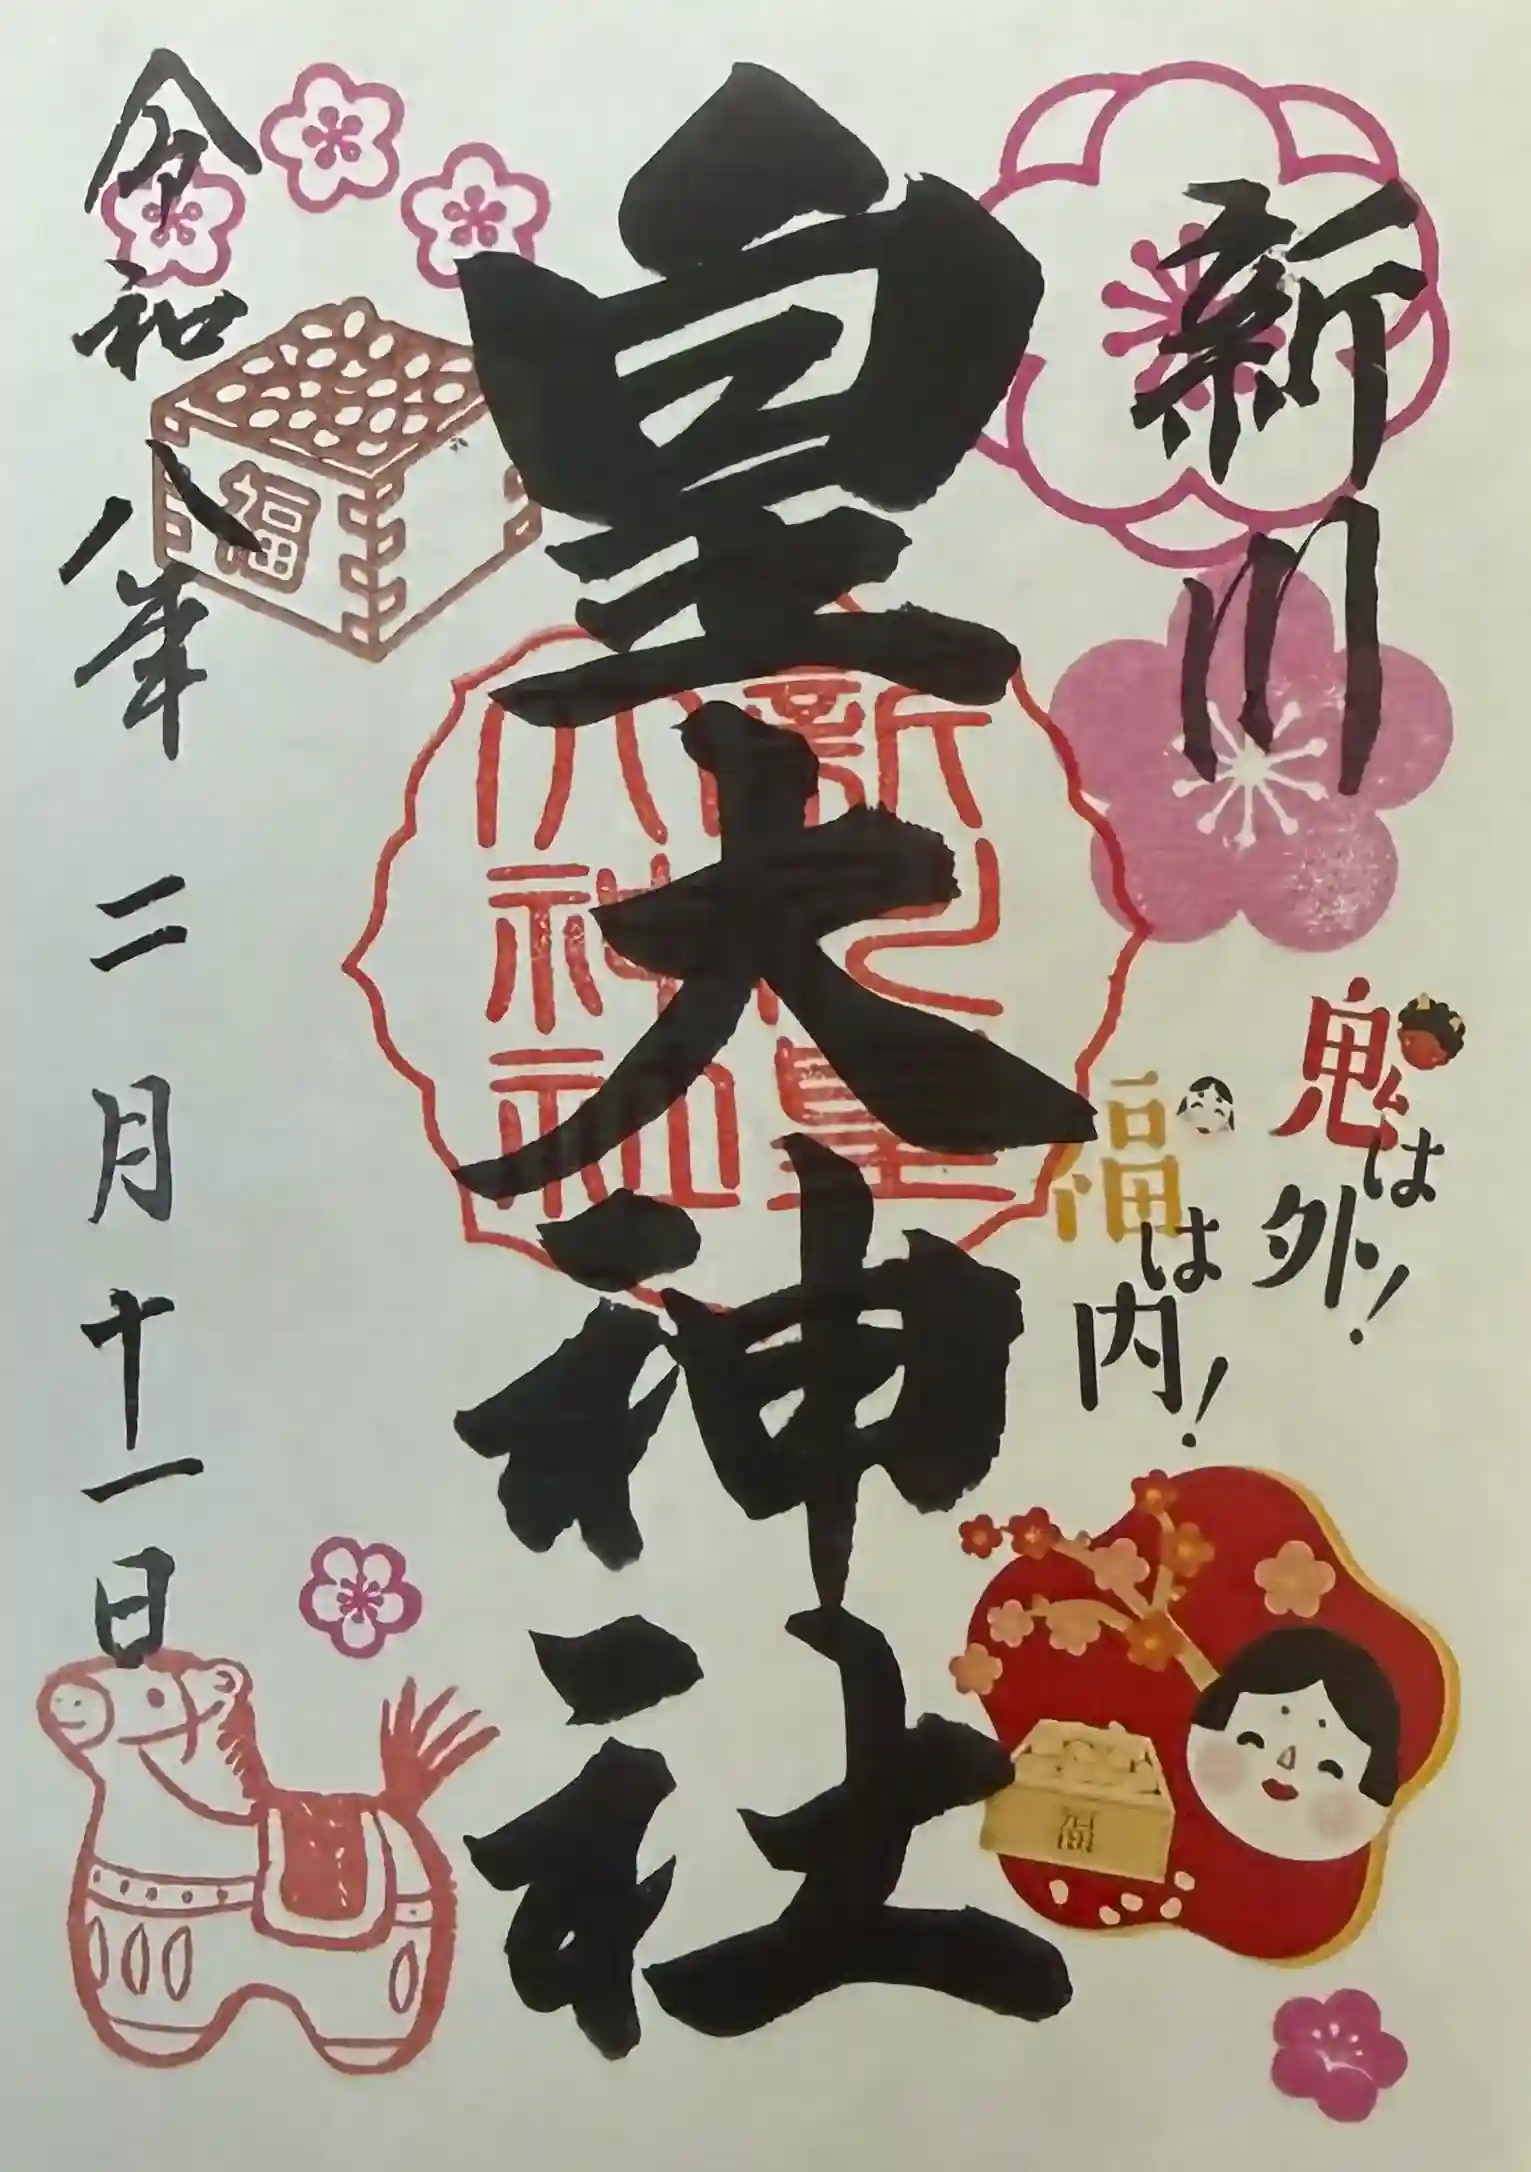 新川
皇大神社
令和八年二月十一日
鬼は外!
福は内!
新川
之皇
大神社
福
福